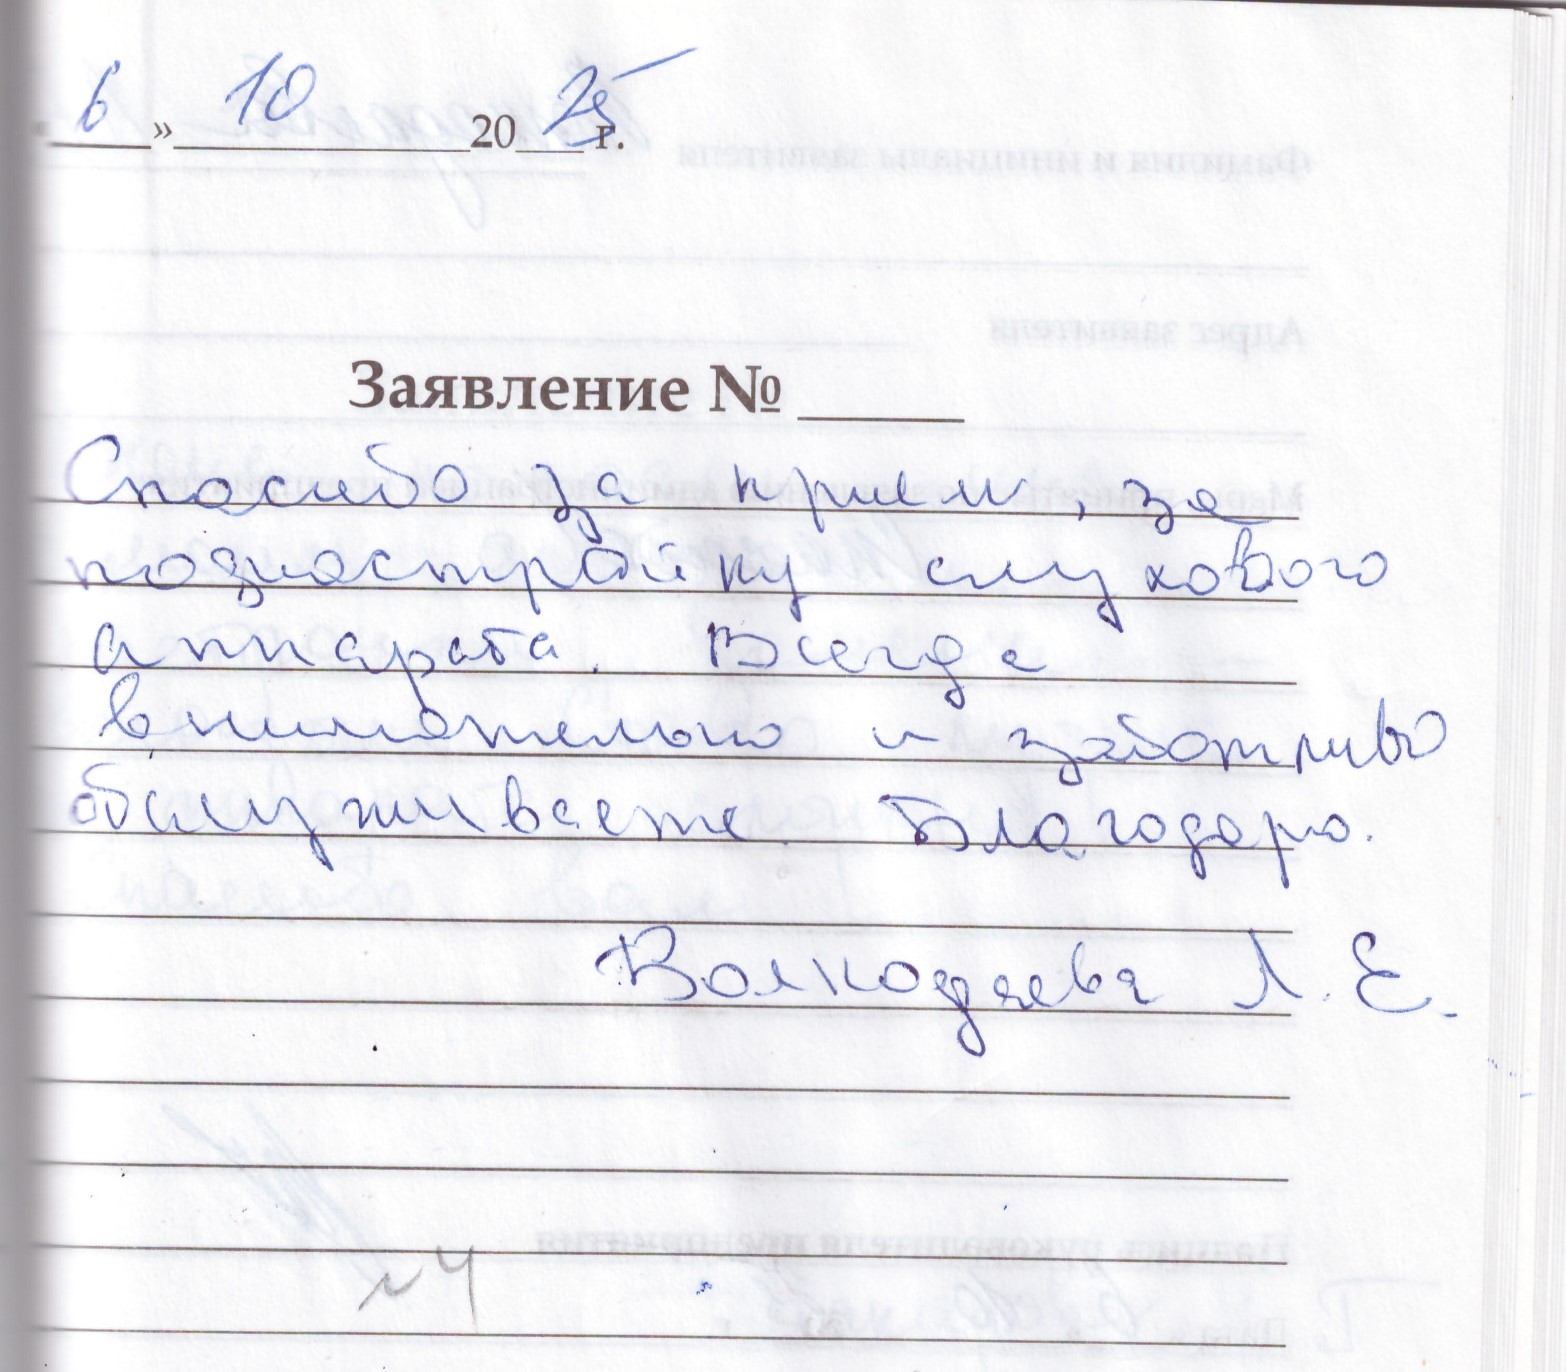 6 » 10 2025 г.
Заявление №
Спасибо за прием, за
поднастройку слухового
аппарата. Всегда
внимательно и заботливо
обслуживаете. Благодарю.
Волкодаева Л. Е.
4